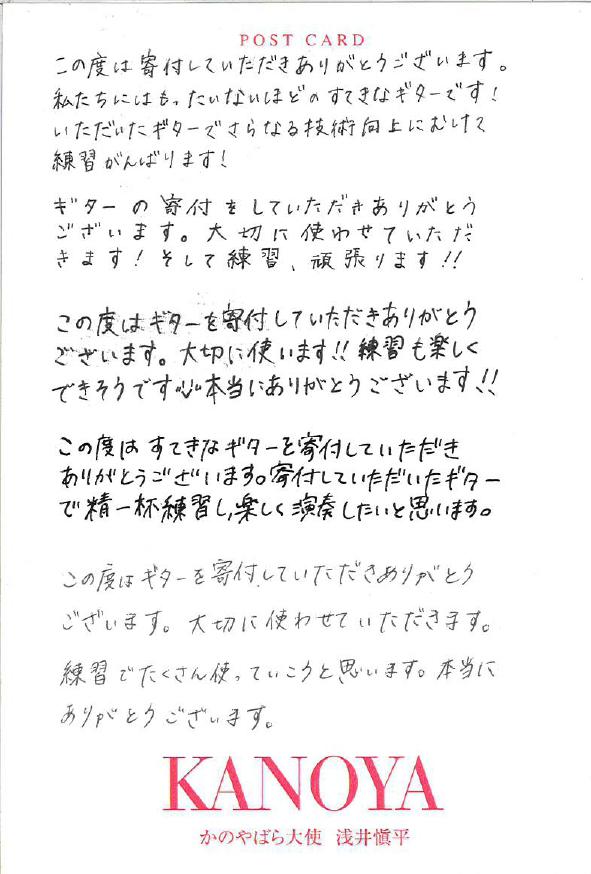 POST CARD
この度は寄付していただきありがとうございます。
私たちにはもったいないほどのすてきなギターです!
いただいたギターでさらなる技術向上にむけて
練習がんばります!
ギターの寄付をしていただきありがとう
ございます。大切に使わせていただ
きます!そして練習、頑張ります!!
この度はギターを寄付していただきありがとう
ございます。大切に使います!!練習も楽しく
できそうです本当にありがとうございます!!
この度はすてきなギターを寄付していただき
ありがとうございます。寄付していただいたギター
で精一杯練習し、楽しく演奏したいと思います。
この度はギターを寄付していただきありがとう
ございます。大切に使わせていただきます。
練習でたくさん使っていこうと思います。本当に
ありがとうございます。
KANOYA
かのやばら大使 浅井愼平